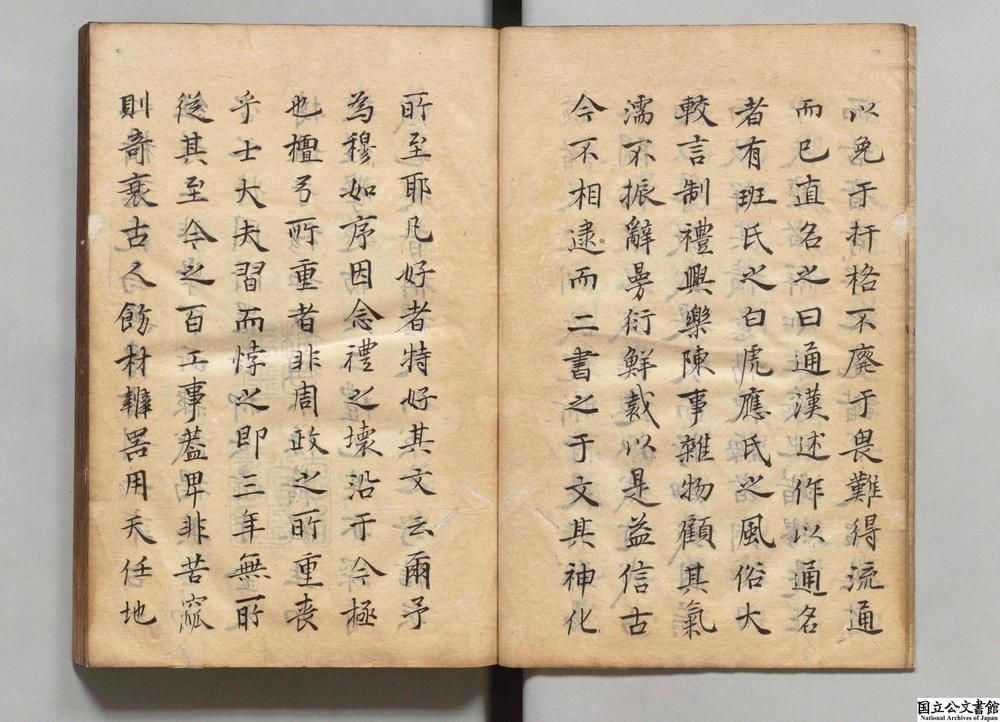 以免于扞格不廢于畏難得流通
而已直名之曰通漢述作以通名
者有班氏之白虎應氏之風俗大
較言制禮興樂陳事雜物顧其氣
濡不振辭曼衍鮮裁以是益信古
今不相逮而二書之于文其神化
所至耶凡好者特好其文云爾予
為穆如序因念禮之壞沿于今極
也檀弓所重者非周政之所重喪
乎士大夫習而悖之即三年無所
從其至今之百工事葢卑非苦窳
則竒衺古人飭材辨器用天任地
国立公文書館
National Archives of Japan